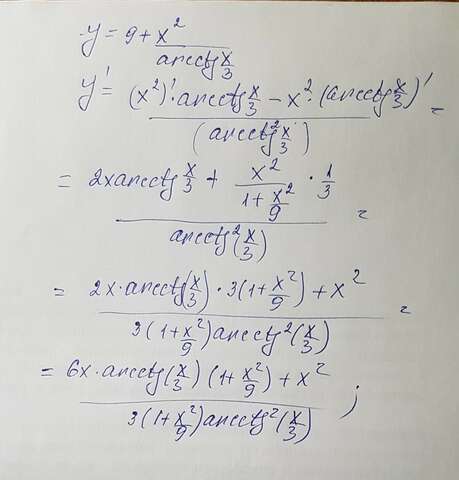 y = 9 + x²
arcctg x/3
y' = (x²)' · arcctg x/3 − x² · (arcctg x/3)' =
(arcctg² x/3)
= 2x arcctg x/3 + x²/(1 + x²/9) · 1/3 =
arcctg² (x/3)
= 2x · arcctg(x/3) · 3(1 + x²/9) + x² =
3(1 + x²/9) arcctg² (x/3)
= 6x · arcctg(x/3) (1 + x²/9) + x² ;
3(1 + x²/9) arcctg² (x/3)